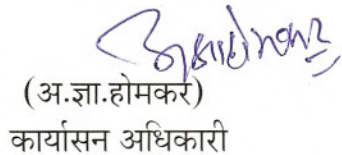 (अ.ज्ञा.होमकर)
कार्यासन अधिकारी